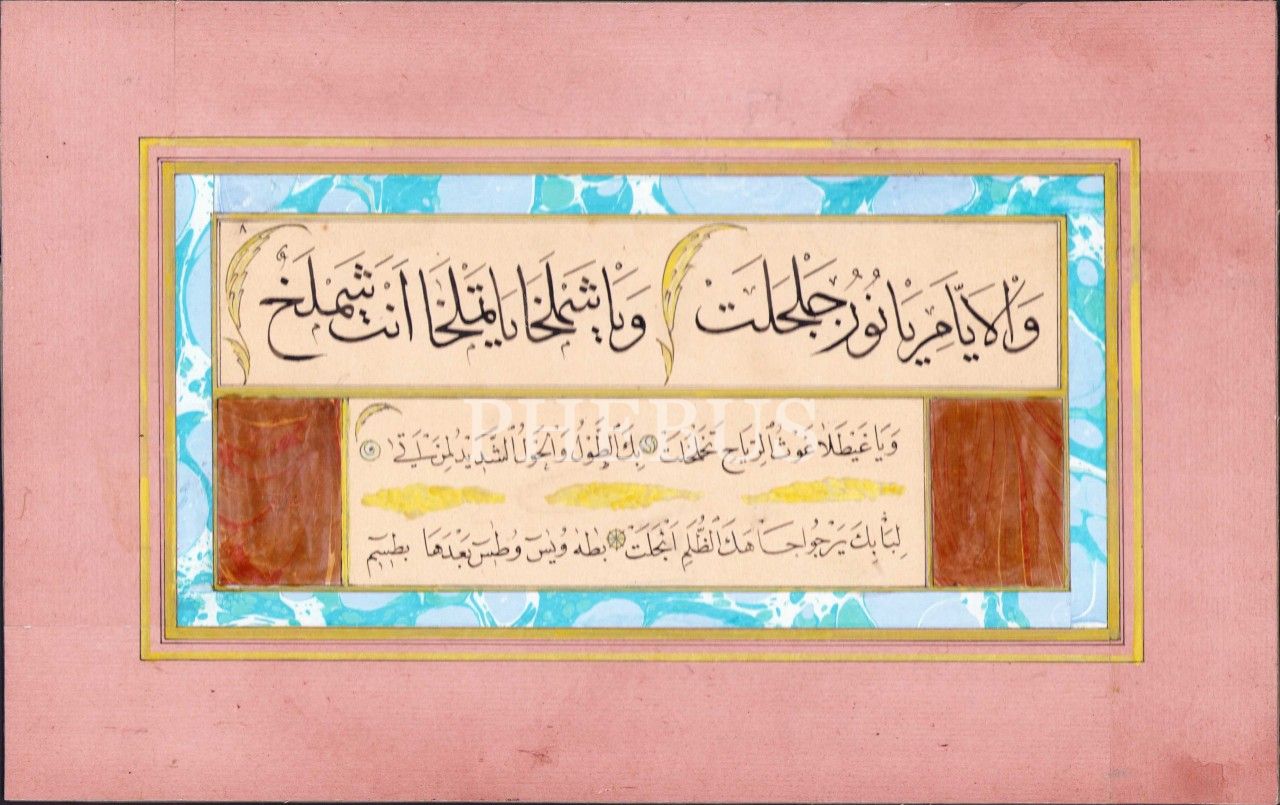 ٨
والايام يا نور جلجلت ويا شملخا يا يملخا انت شملخ
ويا غيطلا غوث الرياح تخلخلت بك الطول والحول الشديد لمن ياتي
PHEBUS
لبابك يرجوا جاهك الظلم انجلت بطه ويس وطس بعدها بطسم